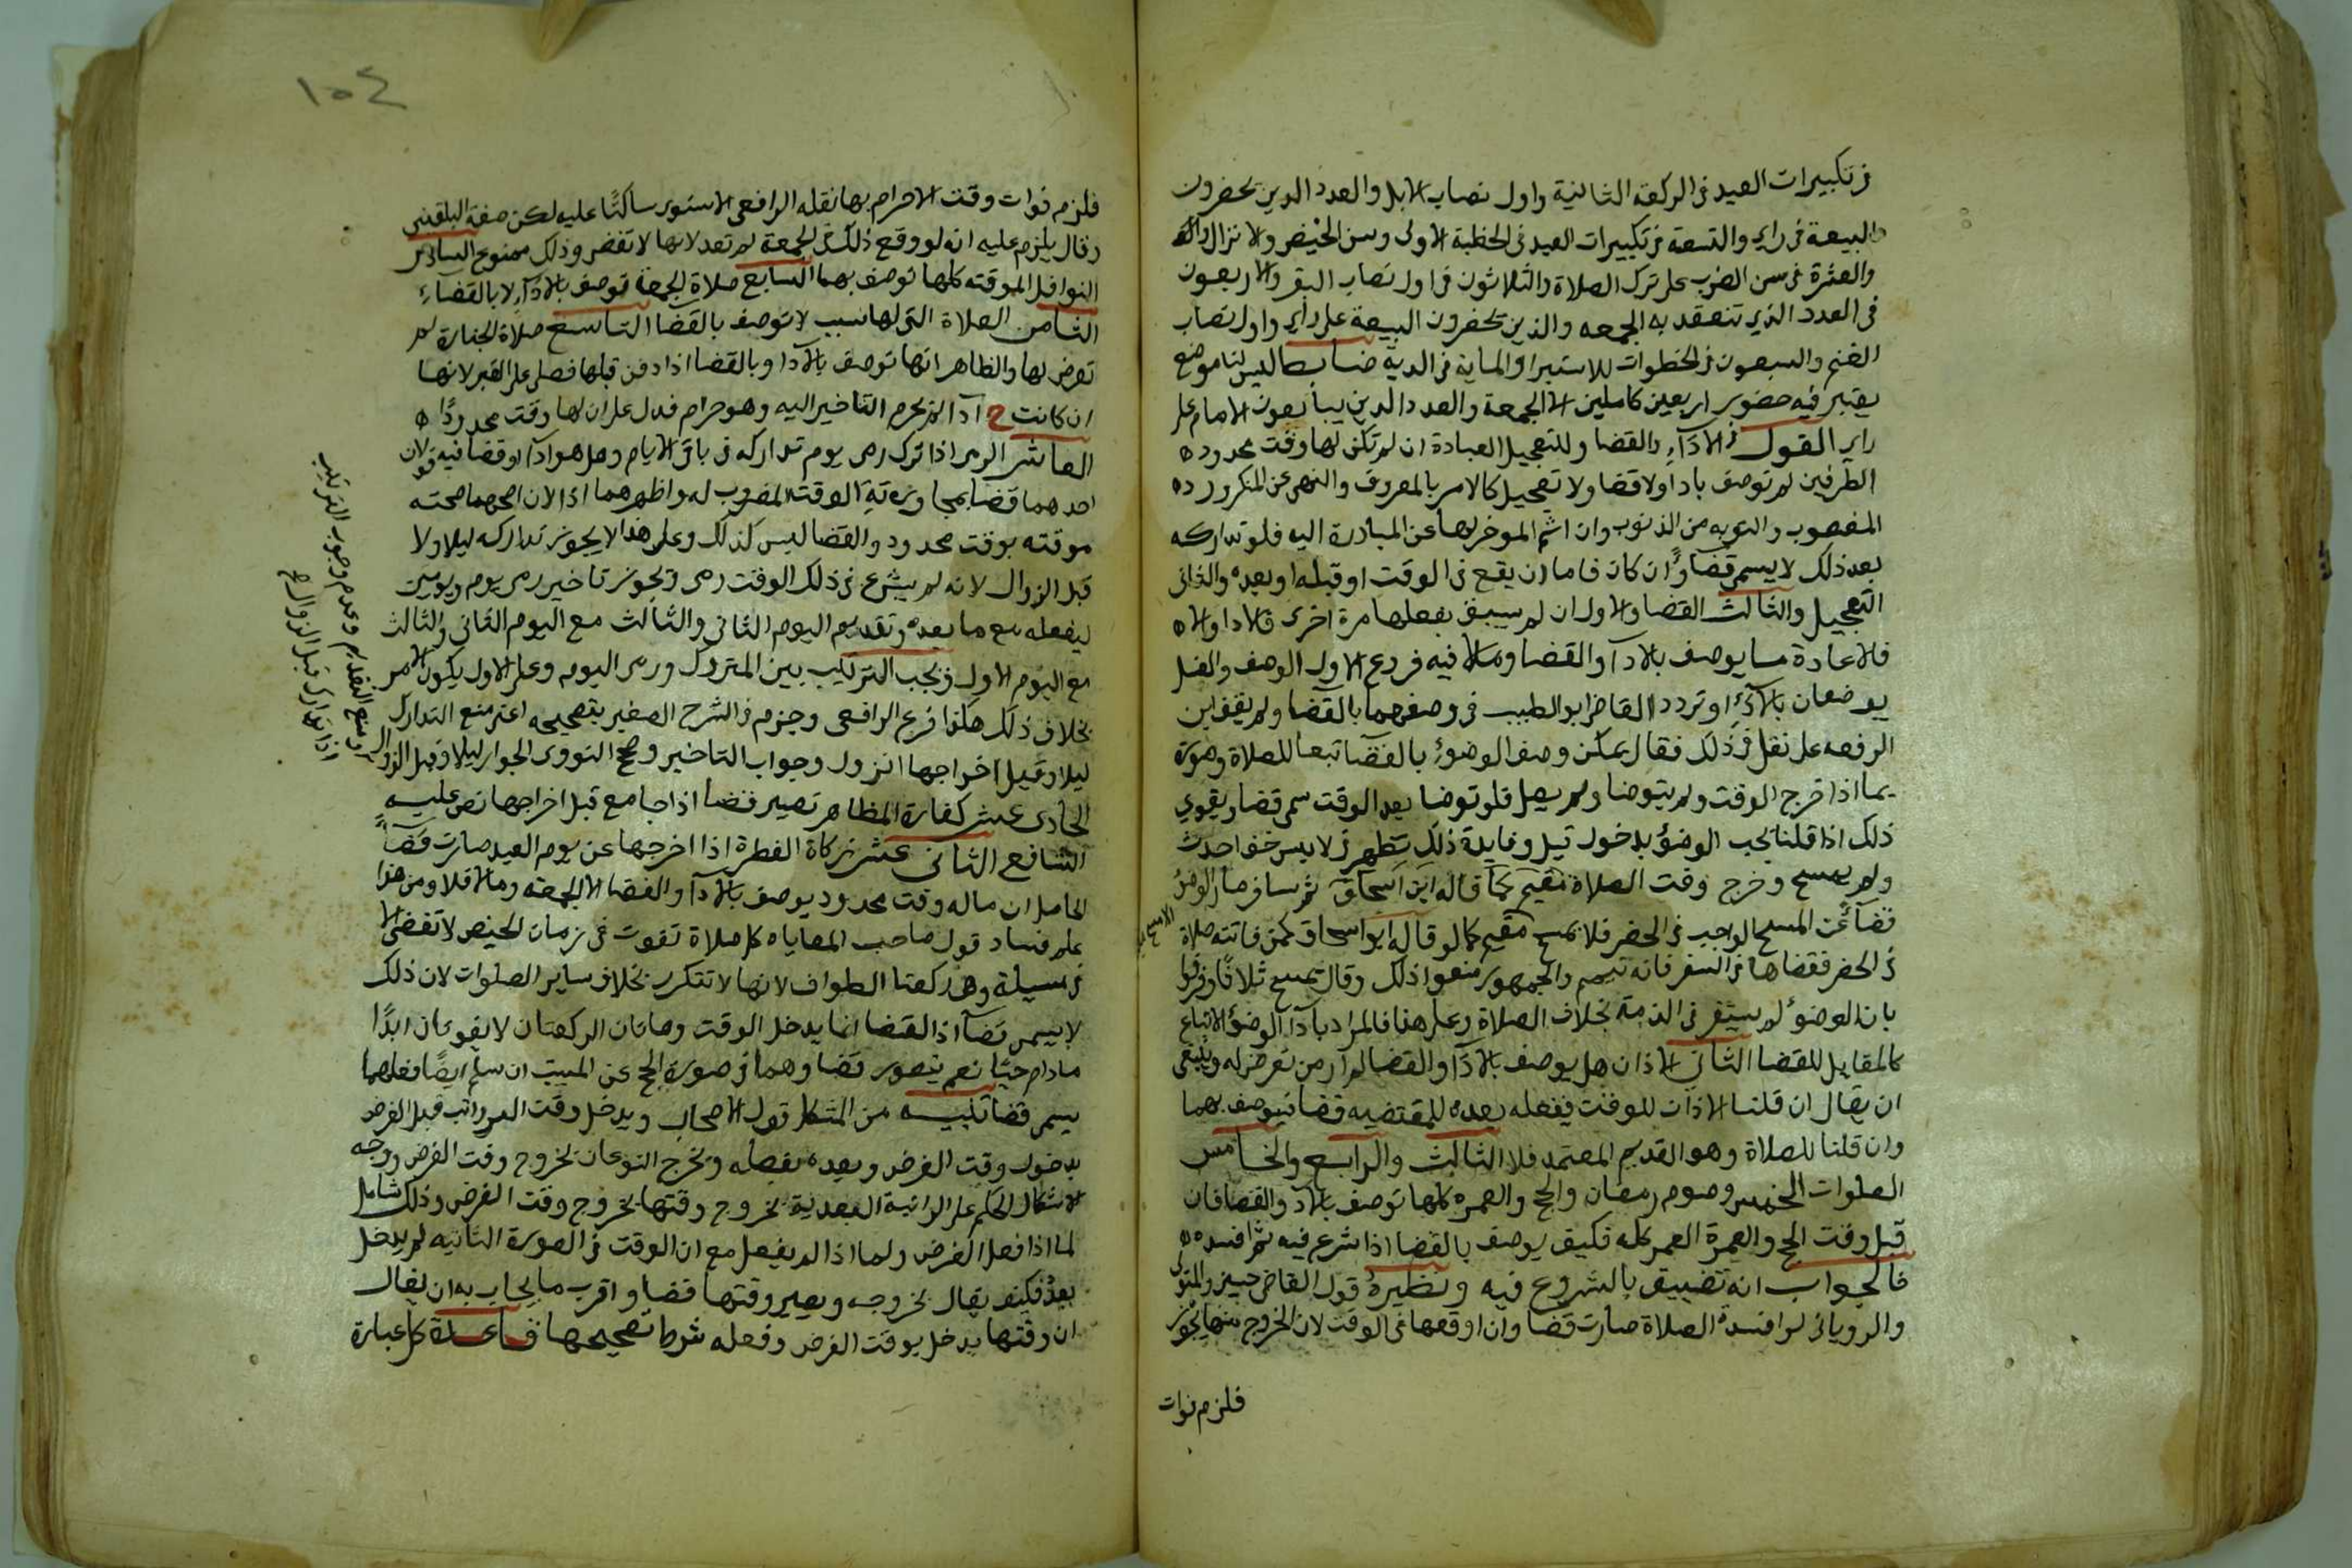 في تكبيرات العيد في الركعة الثانية واول نصاب الابل والعدد الذين يحضرون
البيعة في راي والتسعة في تكبيرات العيد في الخطبة الاولى وسن الحيض
والعشرة في سن الضرب على ترك الصلاة والثلاثون في اول نصاب البقر والاربعون
في العدد الذي تنعقد به الجمعه والذين يحضرون البيعة على راي واول نصاب
الغنم والسبعون في الخطوات للاستبرا والماية في الدية ضابط ليس لنا موضع
يعتبر فيه حضور اربعين كاملين الا الجمعة والعدد الذين يبايعون الامام على
راي القول في الاداء والقضا وللتعجيل العبادة ان لم تكن لها وقت محدود
الطرفين لم توصف باداولا قضا ولا تعجيل كالامر بالمعروف والنهي عن المنكر ورد
المغصوب والتوبه من الذنوب وان اثم الموخر لها عن المبادرة اليه فلو تداركه
بعد ذلك لا يسمى قضاءً وان كان فاما ان يقع في الوقت او قبله او بعده والثاني
التعجيل والثالث القضا والاول ان لم سيبق بفعلها مرة اخرى فالادا والا
فالاعادة ما يوصف بالادآ والقضا ومالا فيه فروع الاول الوضو والغسل
يوصفان بالادآء وتردد القاضي ابو الطيب في وصفهما بالقضا ولم يقف ابن
الرفعه على نقل في ذلك فقال يمكن وصف الوضوء بالقضا تبعا للصلاة وصورة
بما اذا خرج الوقت ولم يتوضا ولم يصل فلو توضا بعد الوقت سمي قضا ويقوي
ذلك اذا قلنا يجب الوضؤ بدخول قيل وفايدة ذلك تظهر في لابس خف احدث
ولم يمسح وخرج وقت الصلاة مقيم كما قاله ابن اسحاق ثم سافر صار الوضؤ
قضآءً عن المسح الواجب في الحضر فلا يمسح مقيم كما لو قاله ابواسحاق كمن فاتته صلاة
في الحضر فقضاها في السفر فانه تيمم والجمهور منعوا ذلك وقال يمسح ثلاثا وفرقوا
بان الوضوء لم يستقر في الذمة بخلاف الصلاة وعلى هذا فالمراد بادآ الوضوء الاتباع
كالمقابل للقضا الثاني الاذان هل يوصف بالادآ والقضا لم ار من تعرض له وينبغي
ان يقال ان قلنا الاذان للوقت ففعله بعده للمقتضيه قضا فيوصف بهما
وان قلنا للصلاة وهو القديم المعتمد فلا الثالث والرابع والخامس
الصلوات الخمس وصوم رمضان والحج والعمره كلها توصف بالادآ والقضا فان
قيل وقت الحج والعمرة العمر كله فكيف يوصف بالقضا اذا شرع فيه ثم افسده
فالجواب انه تضييق بالشروع فيه ونظيره قول القاضي حسين والمتولي
والروياني لو افسد الصلاة صارت قضا وان اوقعها في الوقت لان الخروج منها لا يجوز
فلزم فوات
١٠٤
فلزم فوات وقت الاحرام بها نقله الرافعي الاسنوي ساكتًا عليه لكن ضعفه البلقيني
وقال يلزم عليه انه لو وقع ذلك في الجمعة لم تعد لانها لا تقضى وذلك ممنوع السادس
النوافل الموقته كلها توصف بهما السابع صلاة الجمعة توصف بالادآء لا بالقضاء
الثامن الصلاة التي لها سبب لا توصف بالقضا التاسع صلاة الجنازة لم
تعرض لها والظاهر انها توصف بالادا وبالقضا اذا دفن قبلها فصلى على القبر لانها
ان كانت ح ادآ لم يحرم التاخير اليه وهو حرام فدل على ان لها وقت محدودًا
العاشر الرمي اذا ترك رمي يوم تداركه في باقي الايام وهل هو ادآ او قضا فيه قولان
احدهما قضا بمجاوزته الوقت المضروب له واظهرهما ادا لان صحته
موقته بوقت محدود والقضا ليس كذلك وعلى هذا لا يجوز تداركه ليلا ولا
قبل الزوال لانه لم يشرع في ذلك الوقت رمي ويجوز تاخير رمي يوم ويومين
ليفعله مع ما بعده وتقديم اليوم الثاني والثالث مع اليوم الثاني والثالث
مع اليوم الاول ويجب الترتيب بين المتروك ورمي اليوم وعلى الاول يكون الامر
بخلاف ذلك هكذا فرع الرافعي وجزم في الشرح الصغير بتصحيحه اعني منع التدارك
ليلا وقيل اخراجها الزول وجواب التاخير وصحح النووي الجواز ليلا وقبل الزوال
الحادي عشر كفارة المظاهر تصير قضا اذا جامع قبل اخراجها نص عليه
الشافعي الثاني عشر زكاة الفطرة اذا اخرجها عن يوم العيد صارت قضآءً
الحاصل ان ماله وقت محدود يوصف بالادآ والقضا الا الجمعة ومالا فلا ومن هذا
علم فساد قول صاحب المعاياه كل صلاة تفوت في زمان الحيض لا تقضى الا
في مسيلة وهي ركعتا الطواف لانها لا تتكرر بخلاف ساير الصلوات لان ذلك
لا يسمى قضآ اذ القضا انما يدخل الوقت وهاتان الركعتان لا يفوتان ابدًا
مادام حيًا نعم يتصور قضاوهما في صورة الحج عن الميت ان سلم ايضًا فعلهما
يسمى قضا تنبيه من المشكل قول الاصحاب ويدخل وقت الرواتب قبل الفرض
بدخول وقت الفرض وبعده بفعله ويخرج النوعان بخروج وقت الفرض ووجه
الاشكال الحكم على الراتبة البعدية بخروج وقتها بخروج وقت الفرض وذلك شامل
لما اذا فعل الفرض ولما اذا لم يفعل مع ان الوقت في الصورة الثانيه لم يدخل
بعد فكيف يقال بخروجه ويصير وقتها قضا واقرب ما يجاب به ان يقال
ان وقتها يدخل بوقت الفرض وفعله شرط تصحيحها قاعدة كل عبارة
ومنع التقديم وعدم وجوب الترتيب